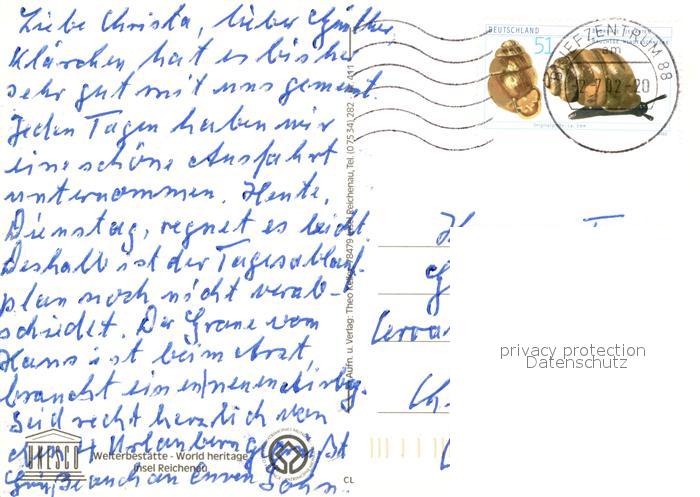 Liebe Christa, lieber Günther,
Klärchen hat es bisher
sehr gut mit uns gemeint.
Jeden Tagen haben wir
eine schöne Ausfahrt
unternommen. Heute,
Dienstag, regnet es leicht.
Deshalb ist der Tagesablauf-
plan noch nicht verab-
schiedet. Der
Hans ist beim Arzt,
braucht ein
Seid recht herzlich von
gegrüßt
Grüße auch an euren Sohn.
DEUTSCHLAND
51
BRIEFZENTRUM 88
Aufn. u. Verlag: Theo Keller, 78479 Insel Reichenau, Tel. (0 75 34) 282
UNESCO
Welterbestätte - World heritage
Insel Reichenau
CL
Ch.
privacy protection
Datenschutz